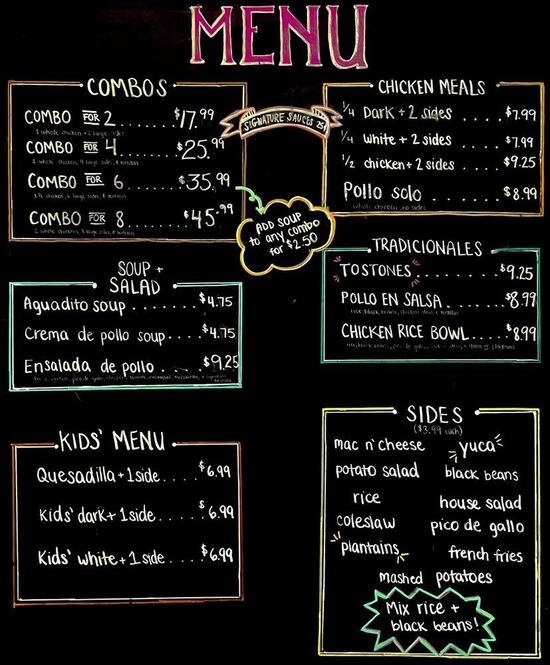 MENU
COMBOS
COMBO FOR 2......$17.99
1 whole chicken + 2 large sides
COMBO FOR 4......$25.99
COMBO FOR 6......$35.99
COMBO FOR 8......$45.99
SIGNATURE SAUCES 25¢
ADD SOUP
to any combo
for $2.50
CHICKEN MEALS
1/4 Dark + 2 sides....$7.99
1/4 white + 2 sides....$7.99
1/2 chicken + 2 sides....$9.25
Pollo solo....$8.99
whole chicken, no sides
SOUP +
SALAD
Aguadito soup.......$4.75
Crema de pollo soup....$4.75
Ensalada de pollo.....$9.25
TRADICIONALES
TOSTONES........$9.25
POLLO EN SALSA.......$8.99
CHICKEN RICE BOWL....$8.99
KIDS' MENU
Quesadilla + 1 side....$6.99
Kids' dark + 1 side.....$6.99
Kids' white + 1 side....$6.99
SIDES
($3.99 each)
mac n' cheese yuca
potato salad black beans
rice house salad
coleslaw pico de gallo
plantains french fries
mashed potatoes
Mix rice +
black beans!